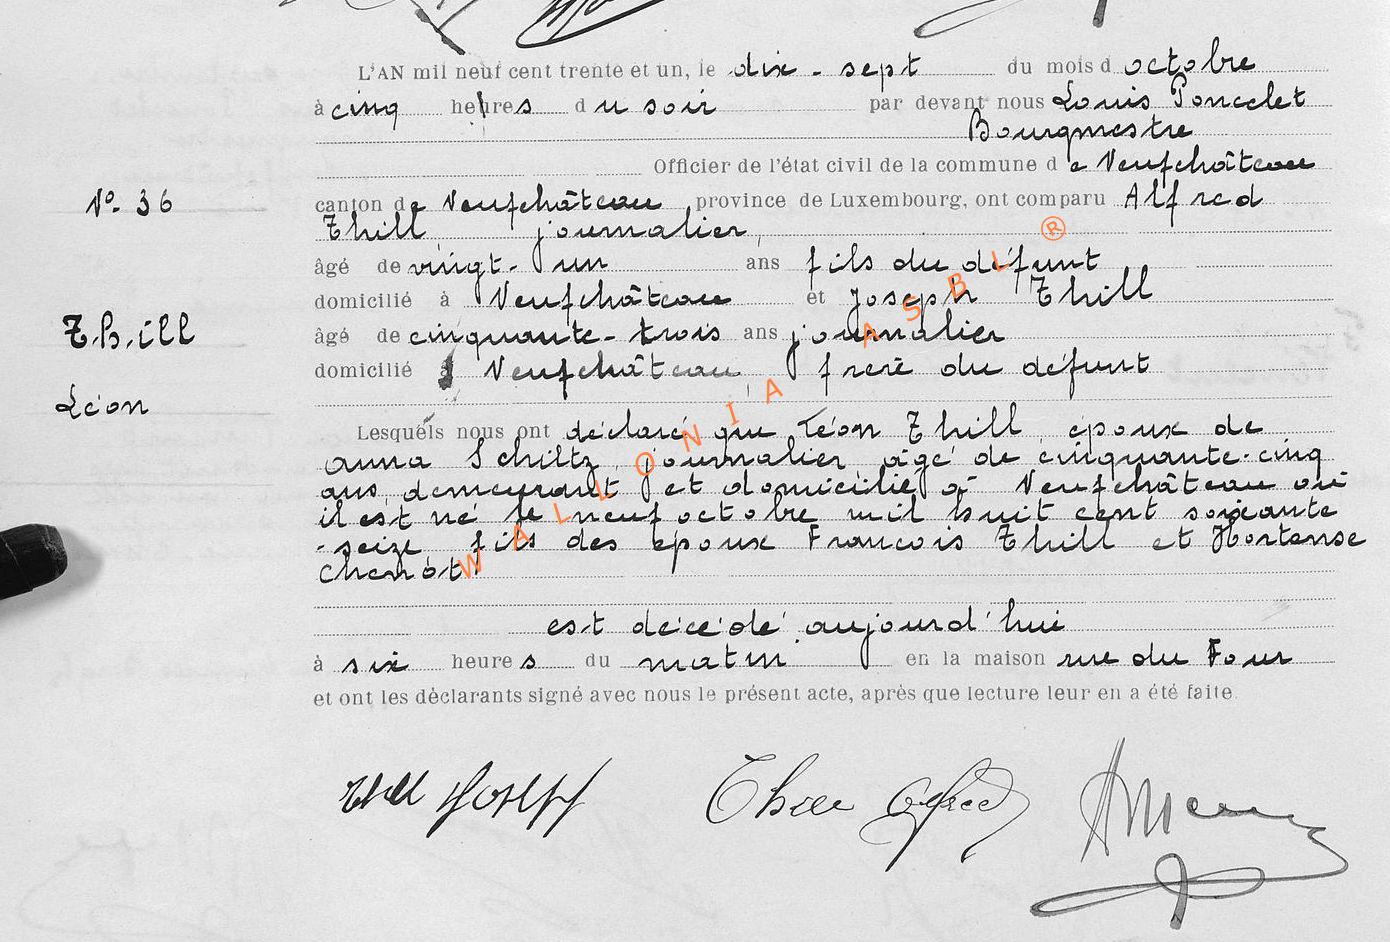 L'AN mil neuf cent trente et un, le dix-sept du mois d octobre
à cinq heures du soir par devant nous Louis Poncelet
Bourgmestre
Officier de l'état civil de la commune de Neufchâteau
N° 36
canton de Neufchâteau province de Luxembourg, ont comparu Alfred
Thill, journalier,
âgé de vingt-un ans fils du défunt
domicilié à Neufchâteau et Joseph Thill
Thill
âgé de cinquante-trois ans journalier
domicilié à Neufchâteau, frère du défunt
Léon
Lesquels nous ont déclaré que Léon Thill, époux de
anna Schiltz, journalier, âgé de cinquante-cinq
ans, demeurant et domicilié à Neufchâteau où
il est né le neuf octobre mil huit cent soixante
-seize, fils des époux Francois Thill et Hortense
Chenot,
est décédé aujourd'hui
à six heures du matin en la maison rue du Four
et ont les déclarants signé avec nous le présent acte, après que lecture leur en a été faite.
Thill Joseph Thill Alfred
WALLONIA ASBL ®